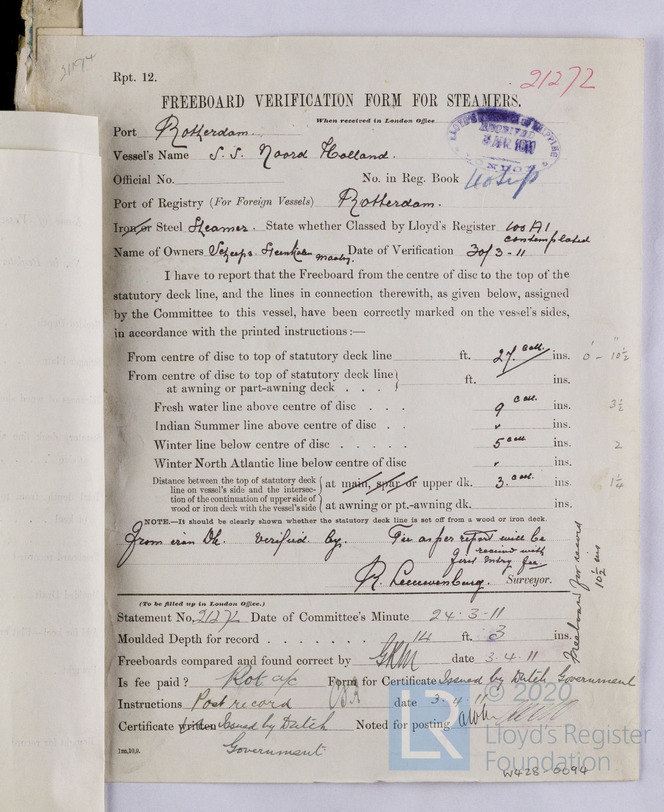 Rpt. 12.
21272
FREEBOARD VERIFICATION FORM FOR STEAMERS.
When received in London Office
Port Rotterdam.
Vessel's Name S.S. Noord Holland.
Official No. No. in Reg. Book
Port of Registry (For Foreign Vessels) Rotterdam.
Iron or Steel Steamer. State whether Classed by Lloyd's Register 100A1
contemplated
Name of Owners Date of Verification 30/3-11
I have to report that the Freeboard from the centre of disc to the top of the
statutory deck line, and the lines in connection therewith, as given below, assigned
by the Committee to this vessel, have been correctly marked on the vessel's sides,
in accordance with the printed instructions:—
From centre of disc to top of statutory deck line ft. 27. ins. 0 - 10½
From centre of disc to top of statutory deck line
at awning or part-awning deck . . . ft. ins.
Fresh water line above centre of disc . . . 9 ins. 3½
Indian Summer line above centre of disc . . " ins.
Winter line below centre of disc . . . . . 5 ins. 2
Winter North Atlantic line below centre of disc " ins.
Distance between the top of statutory deck
line on vessel's side and the intersec-
tion of the continuation of upper side of
wood or iron deck with the vessel's side
at main, spar or upper dk. 3. ins. 1¼
at awning or pt.-awning dk. ins.
NOTE.—It should be clearly shown whether the statutory deck line is set off from a wood or iron deck.
From iron Dk. Verified by. Fee as per report will be
received with
first entry fee
R. Leeuwenburg. Surveyor.
Freeboard for record
10½ ins
(To be filled up in London Office.)
Statement No. 21272 Date of Committee's Minute 24.3.11
Moulded Depth for record . . . . . . . 14 ft. 3 ins.
Freeboards compared and found correct by GRM date 3.4.11
Is fee paid? Rot a/c Form for Certificate Issued by Dutch Government
Instructions Post record date 3.4.11
Certificate written Issued by Dutch Noted for posting
Government
1m,10,9.
© 2020
Lloyd's Register
Foundation
LR
W428-0094